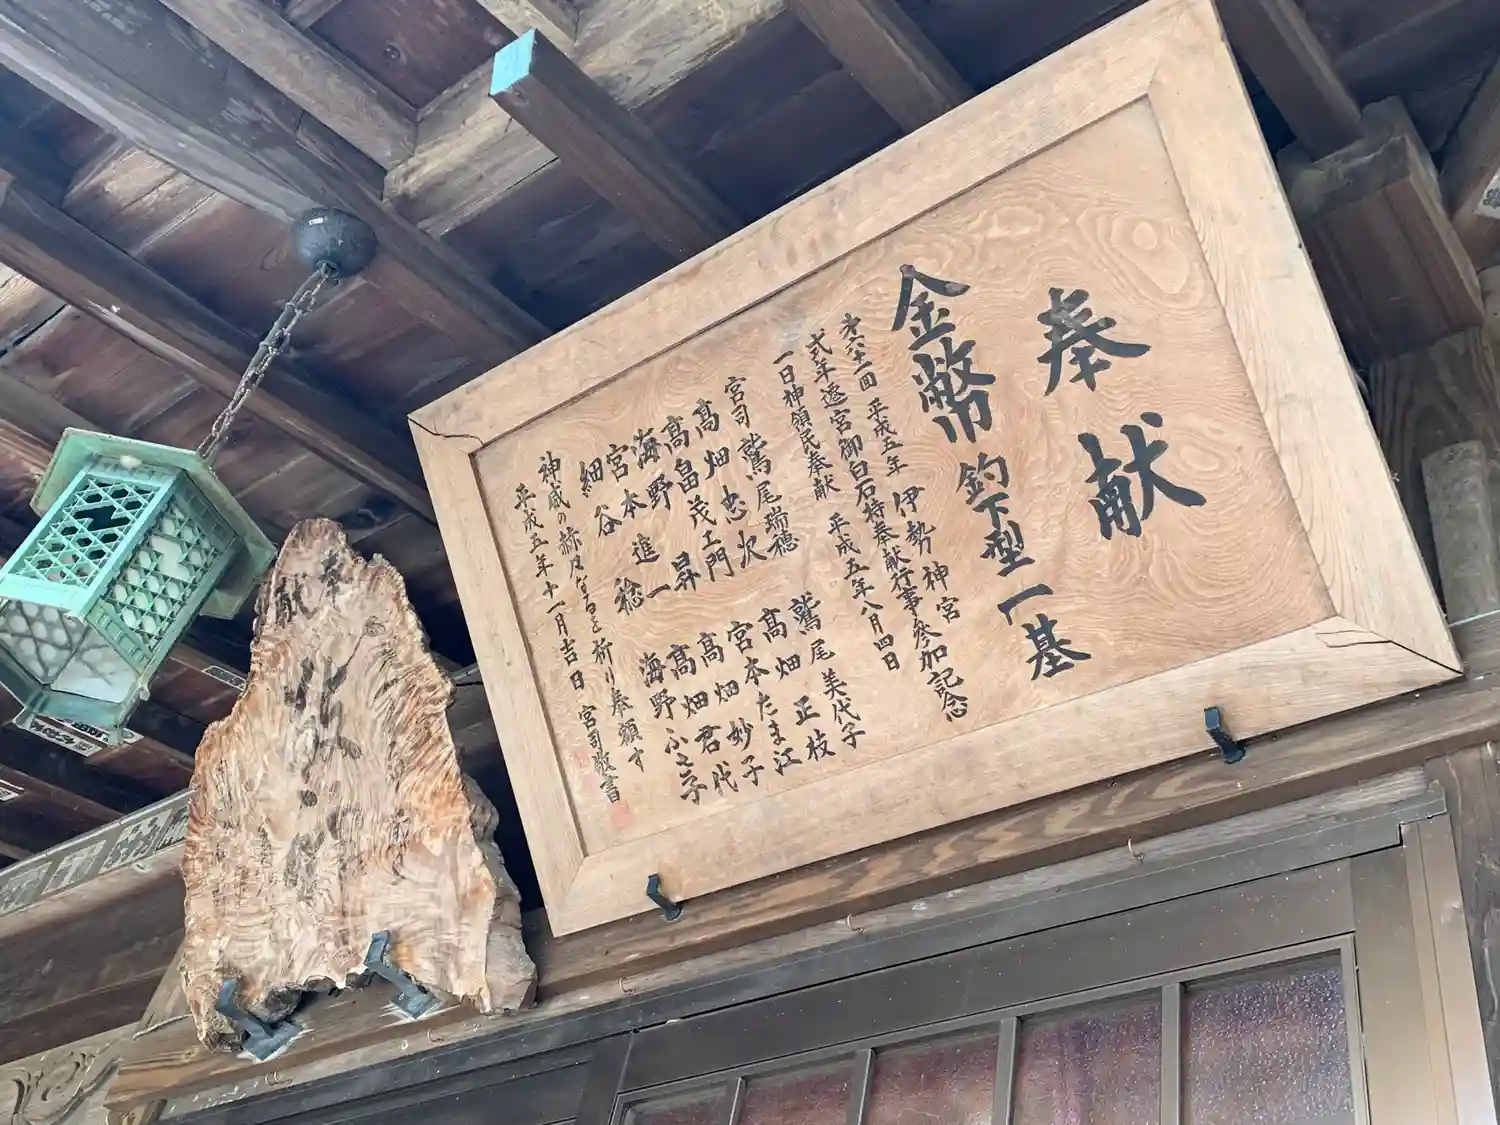 奉献
金幣 釣下型 一基
第六十一回 平成五年 伊勢神宮
弍年遷宮御白石持奉献行事参加記念
一日神領民奉献 平成五年八月四日
宮司 鷲尾瑞穂 鷲尾美代子
髙畑忠次 髙畑正枝
髙畠茂左門 宮本たま江
海野昇 髙畑妙子
宮本進一 髙畑君代
細谷稔 海野ふと子
神威の赫々なると祈り奉願す
平成五年十一月吉日 宮司敬書
奉献